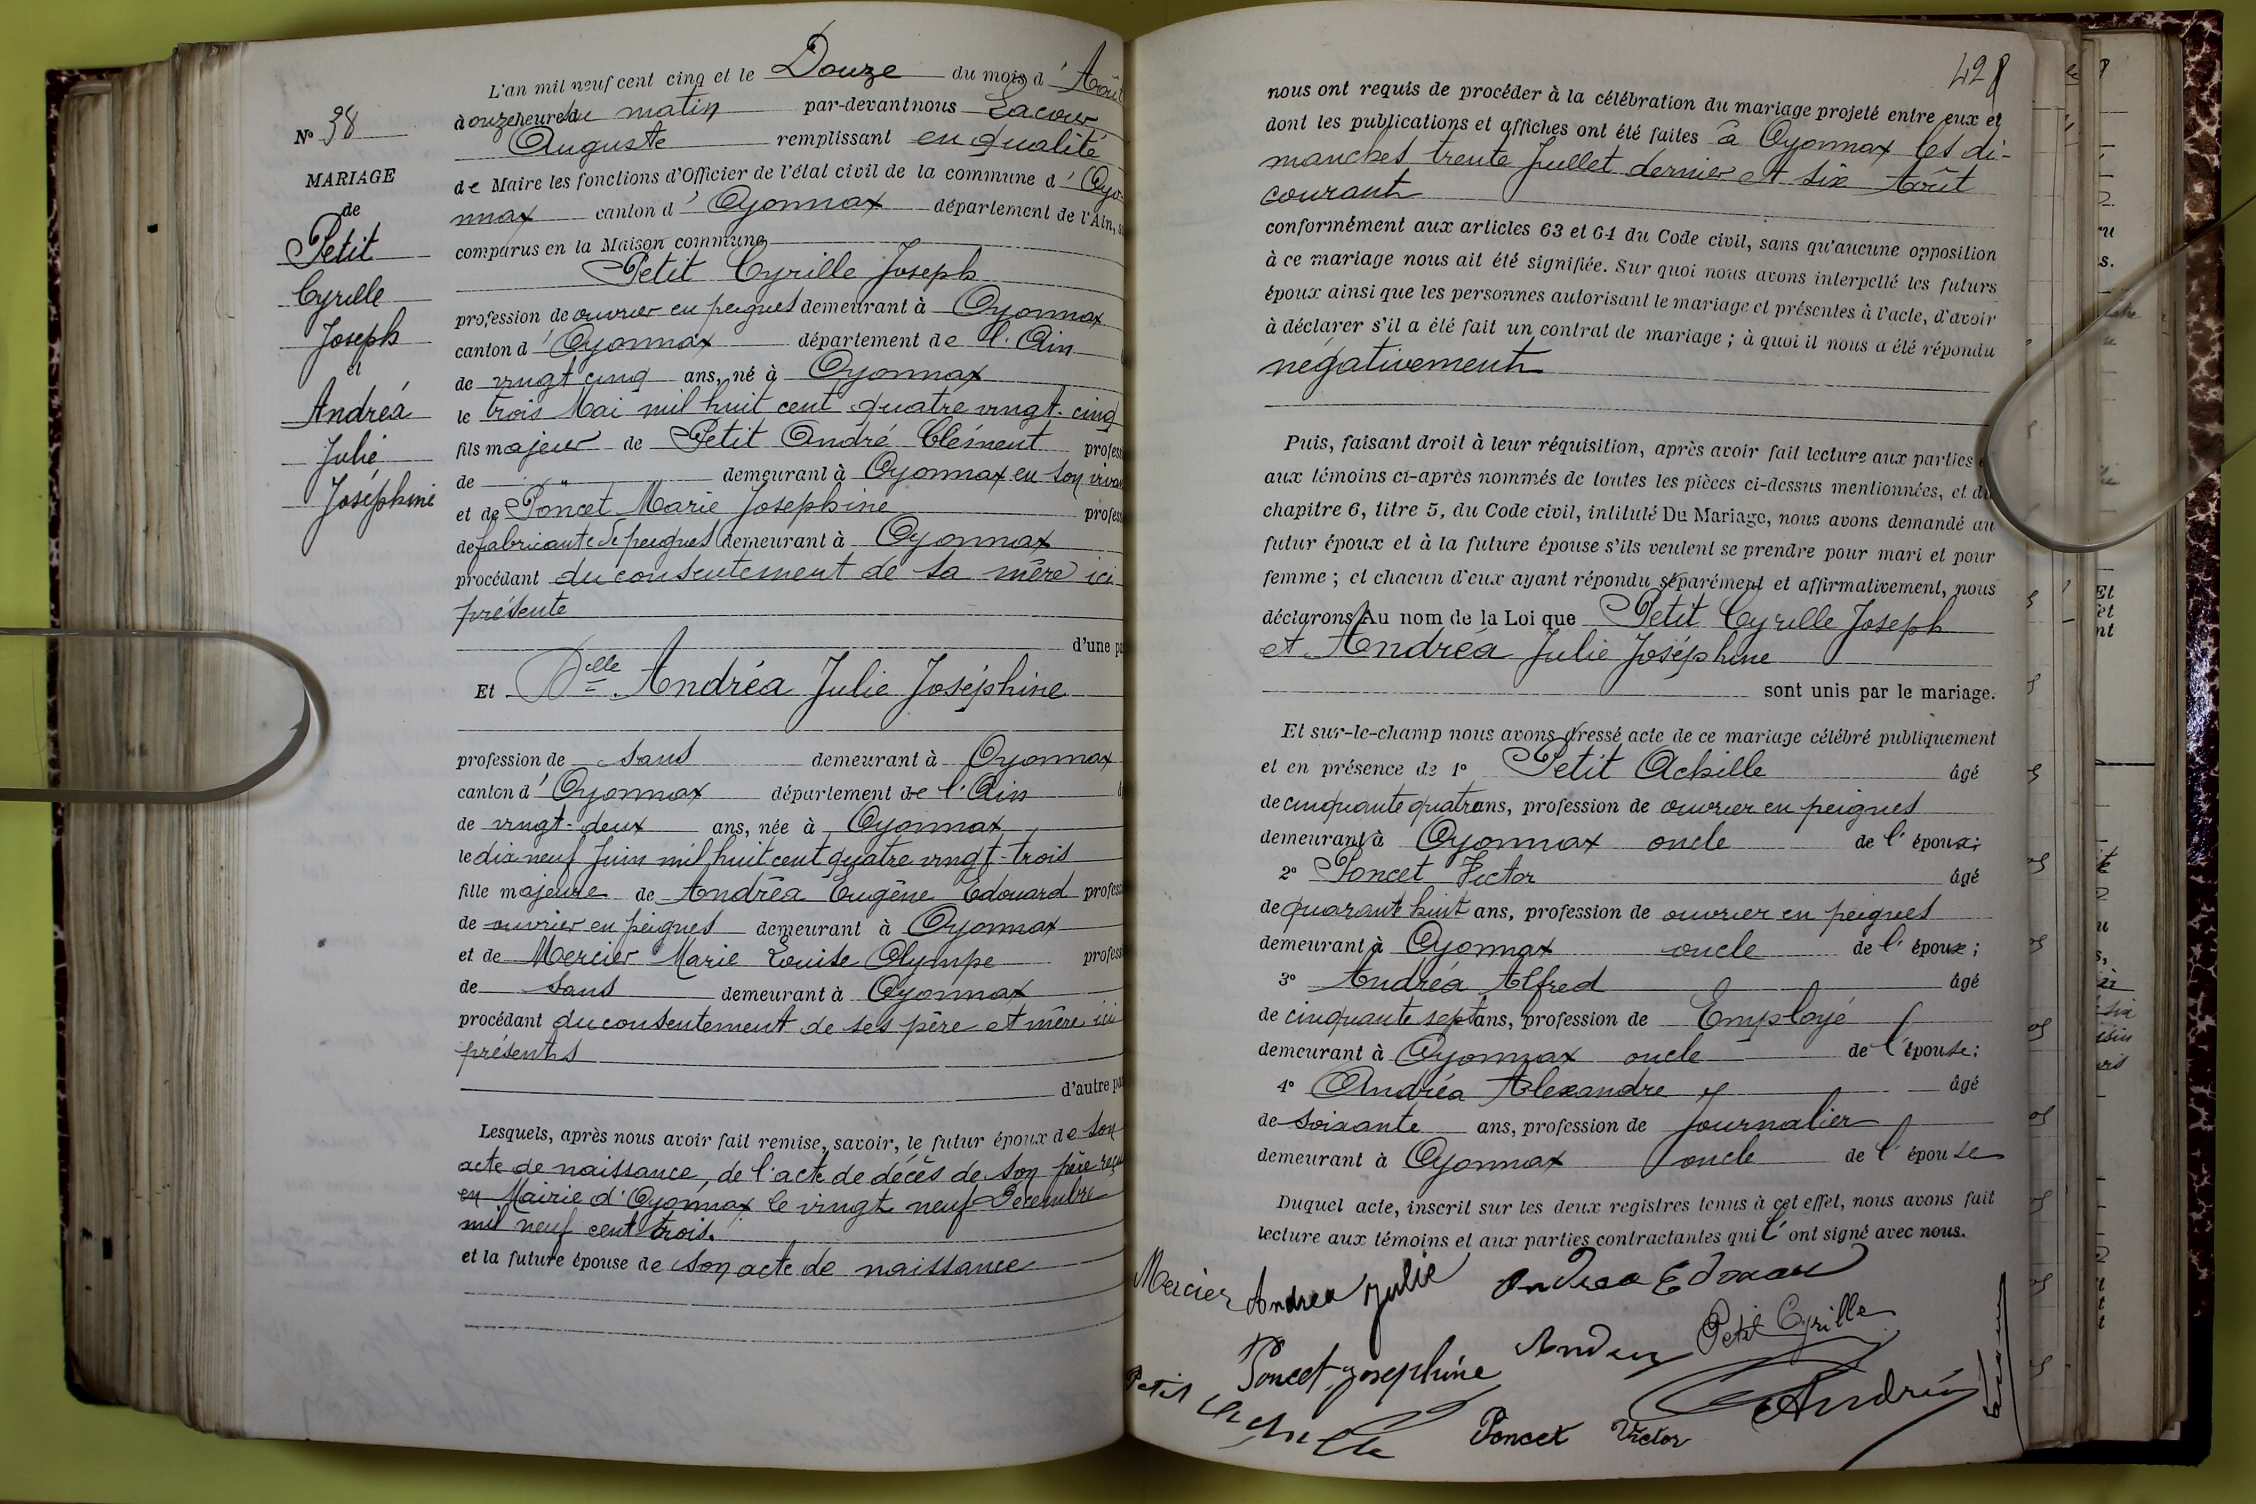 L'an mil neuf cent cinq et le Douze du mois d'Août
à onze heures du matin par-devant nous Lacour
Auguste remplissant en qualité
de Maire les fonctions d'Officier de l'état civil de la commune d'Oyo-
nnax canton d'Oyonnax département de l'Ain,
comparus en la Maison commune
Petit Cyrille Joseph
profession de ouvrier en peignes demeurant à Oyonnax
canton d'Oyonnax département de l'Ain
de vingt cinq ans, né à Oyonnax
le trois Mai mil huit cent quatre vingt-cinq
fils majeur de Petit André Clément profess
de demeurant à Oyonnax en son viva
et de Poncet Marie Josephine profess
de fabricante de peignes demeurant à Oyonnax
procédant du consentement de sa mère ici
présente
d'une pa
Et Delle Andréa Julie Joséphine
profession de sans demeurant à Oyonnax
canton d'Oyonnax département de l'Ain
de vingt-deux ans, née à Oyonnax
le dix neuf Juin mil huit cent quatre vingt-trois
fille majeure de Andréa Eugène Edouard profess
de ouvrier en peignes demeurant à Oyonnax
et de Mercier Marie Louise Olympe profess
de sans demeurant à Oyonnax
procédant du consentement de ses père et mère ici
présents
d'autre pa
Lesquels, après nous avoir fait remise, savoir, le futur époux de son
acte de naissance, de l'acte de décès de son père reçu
en Mairie d'Oyonnax le vingt neuf Décembre
mil neuf cent trois.
et la future épouse de son acte de naissance
No 38
MARIAGE
de
Petit
Cyrille
Joseph
et
Andréa
Julie
Joséphine
428
nous ont requis de procéder à la célébration du mariage projeté entre eux et
dont les publications et affiches ont été faites à Oyonnax les di-
manches trente Juillet dernier et six Août
courant
conformément aux articles 63 et 64 du Code civil, sans qu'aucune opposition
à ce mariage nous ait été signifiée. Sur quoi nous avons interpellé les futurs
époux ainsi que les personnes autorisant le mariage et présentes à l'acte, d'avoir
à déclarer s'il a été fait un contrat de mariage ; à quoi il nous a été répondu
négativement
Puis, faisant droit à leur réquisition, après avoir fait lecture aux parties
aux témoins ci-après nommés de toutes les pièces ci-dessus mentionnées, et du
chapitre 6, titre 5, du Code civil, intitulé Du Mariage, nous avons demandé au
futur époux et à la future épouse s'ils veulent se prendre pour mari et pour
femme ; et chacun d'eux ayant répondu séparément et affirmativement, nous
déclarons Au nom de la Loi que Petit Cyrille Joseph
et Andréa Julie Joséphine
sont unis par le mariage.
Et sur-le-champ nous avons dressé acte de ce mariage célébré publiquement
et en présence de 1o Petit Achille âgé
de cinquante quatre ans, profession de ouvrier en peignes
demeurant à Oyonnax oncle de l'époux;
2o Poncet Victor âgé
de quarante huit ans, profession de ouvrier en peignes
demeurant à Oyonnax oncle de l'époux ;
3o Andréa Alfred âgé
de cinquante sept ans, profession de Employé
demeurant à Oyonnax oncle de l'épouse;
4o Andréa Alexandre âgé
de soixante ans, profession de journalier
demeurant à Oyonnax oncle de l'épouse
Duquel acte, inscrit sur les deux registres tenus à cet effet, nous avons fait
lecture aux témoins et aux parties contractantes qui l'ont signé avec nous.
Mercier Andrea Julie Andrea Edouard
Petit Cyrille
Poncet Josephine
Petit Achille
Poncet Victor